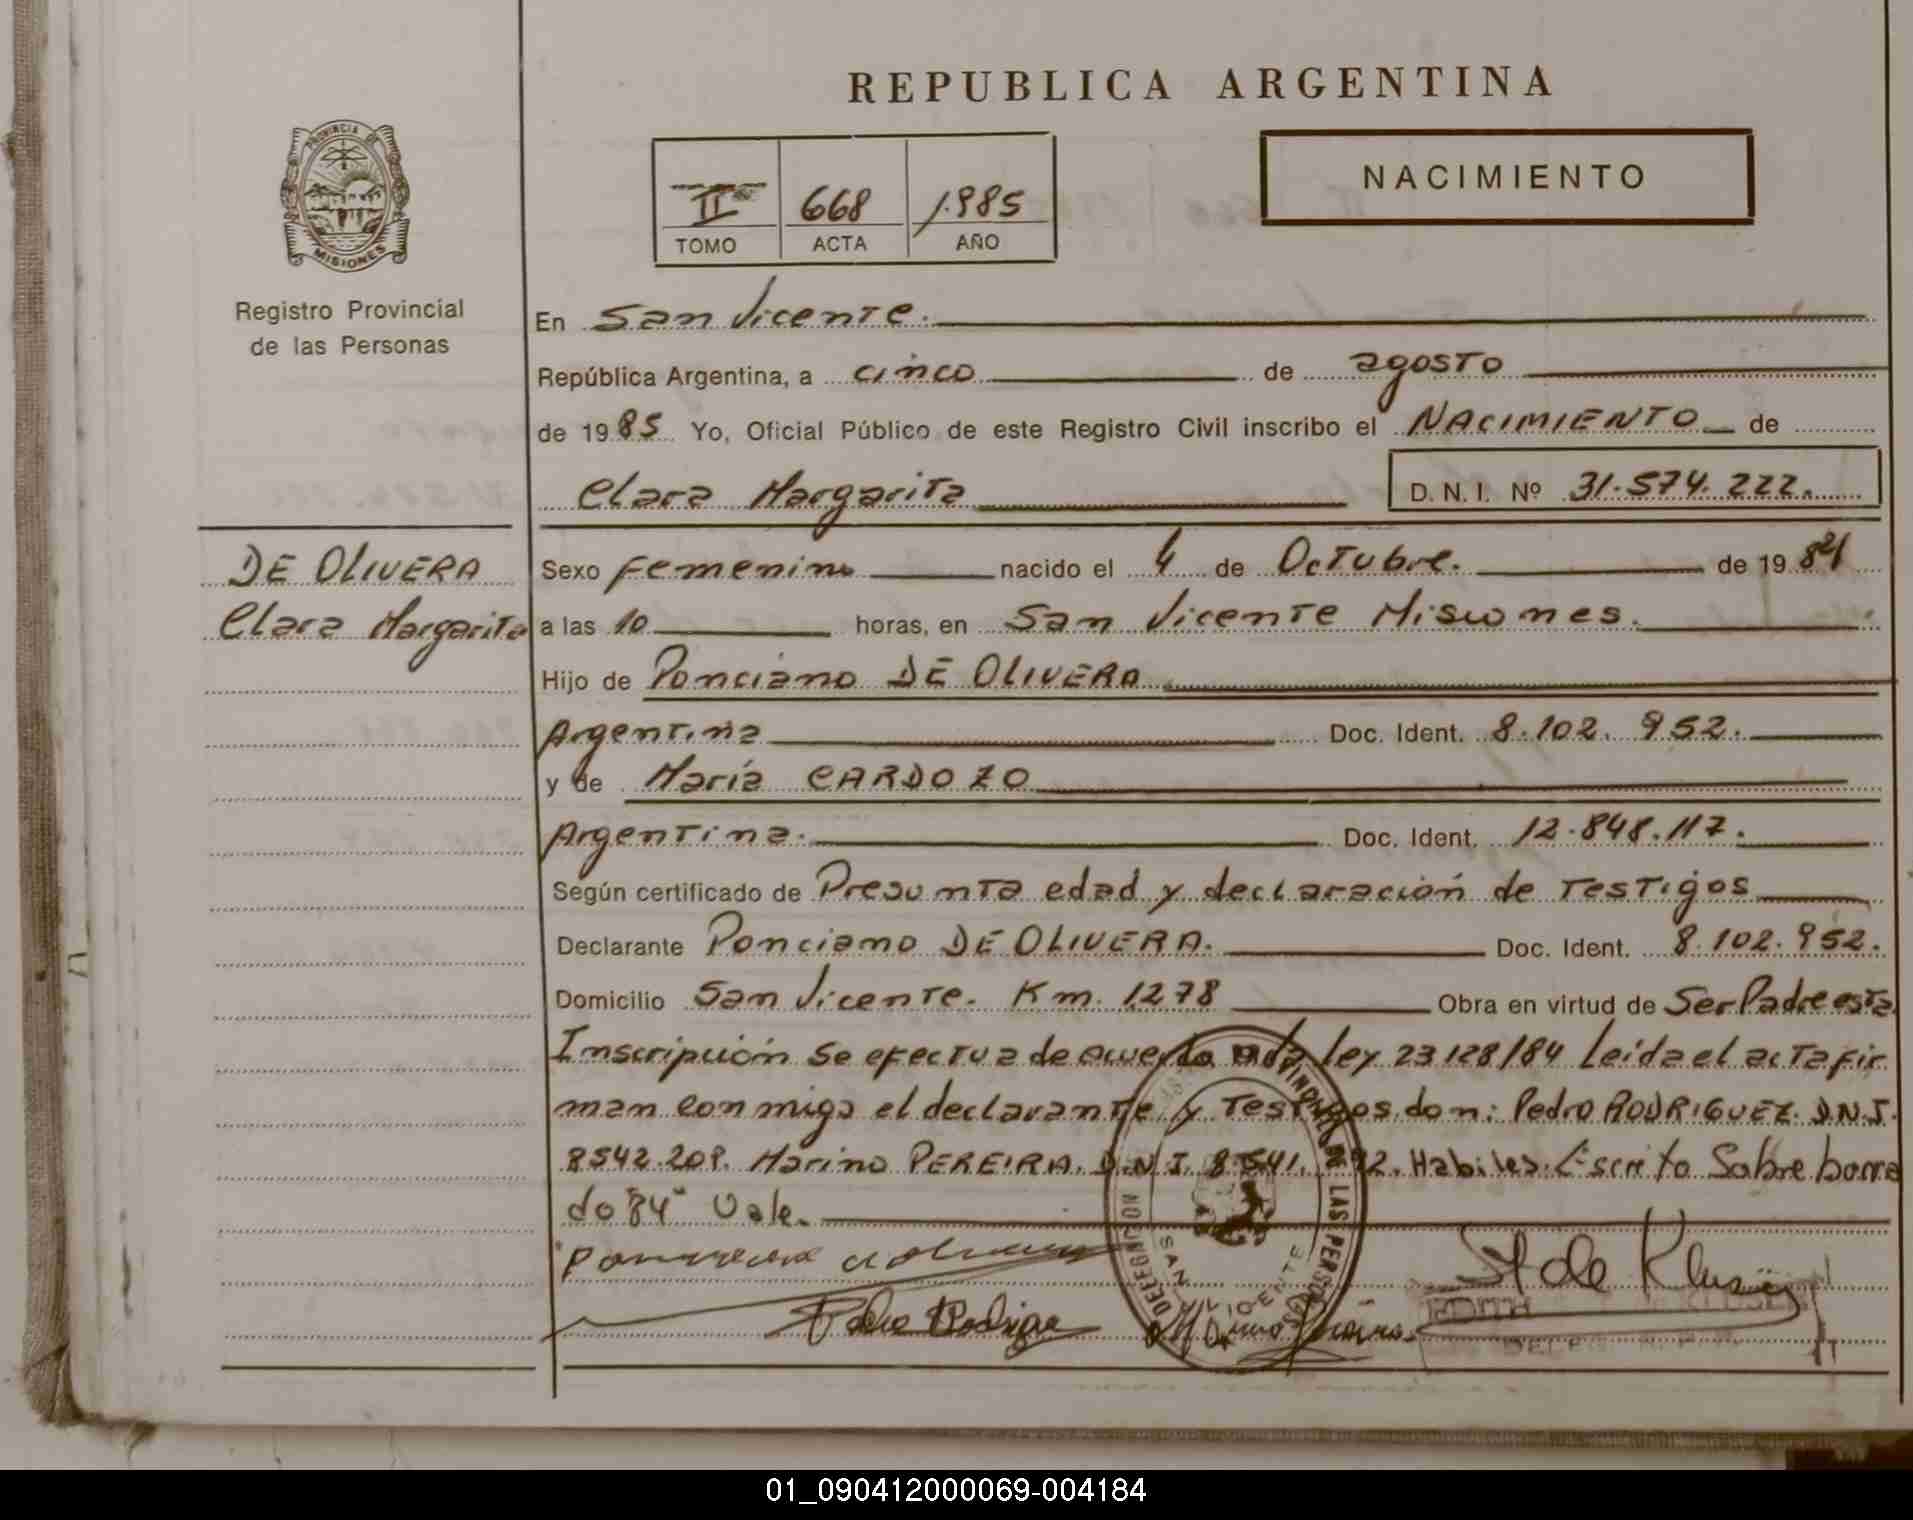 REPUBLICA ARGENTINA
PROVINCIA DE
MISIONES
Registro Provincial
de las Personas
II 668 1.985
TOMO ACTA AÑO
NACIMIENTO
En San Vicente.
República Argentina, a cinco de agosto
de 1985 Yo, Oficial Público de este Registro Civil inscribo el NACIMIENTO de
Clara Margarita D. N. I. Nº 31.574.222.
DE OLIVERA
Clara Margarita
Sexo femenino nacido el 4 de Octubre. de 1984
a las 10 horas, en San Vicente Misiones.
Hijo de Ponciano DE OLIVERA
Argentina Doc. Ident. 8.102.952.
y de María CARDOZO
Argentina. Doc. Ident. 12.848.117.
Según certificado de Presunta edad y declaración de testigos
Declarante Ponciano DE OLIVERA. Doc. Ident. 8.102.952.
Domicilio San Vicente. Km. 1278 Obra en virtud de Ser Padre esta
Inscripción se efectua de acuerdo a la ley 23128/84 Leida el acta fir
man conmigo el declarante y Testigos don: Pedro RODRIGUEZ. D.N.I.
8542.209. Marino PEREIRA. D.N.I. 8.541. 92. Habiles. Escrito Sobre borra
do "84" Vale.
DELEGACION PROVINCIAL DE LAS PERSONAS
SAN VICENTE
Pedro Rodrigue
EDITH
01_090412000069-004184